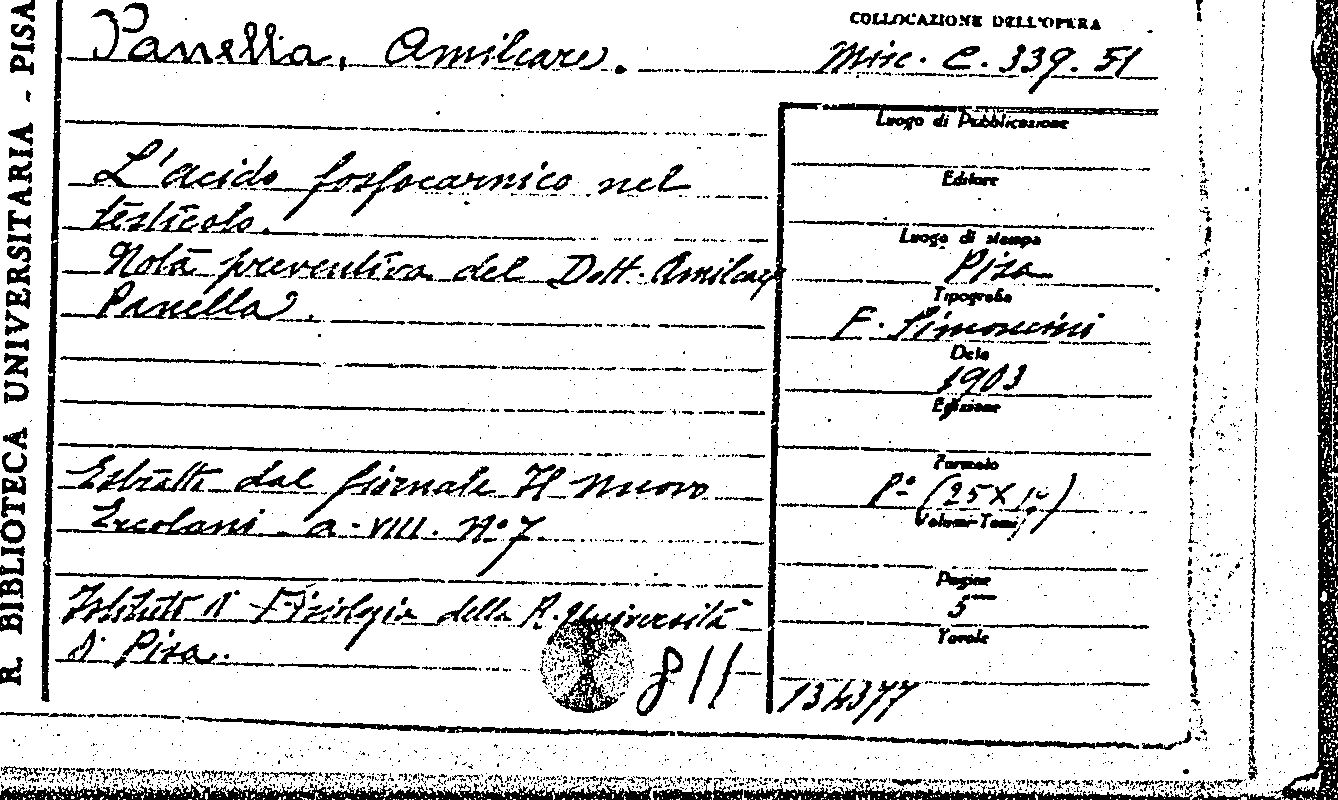 R. BIBLIOTECA UNIVERSITARIA - PISA
Panella, Amilcare.
COLLOCAZIONE DELL'OPERA
Misc. C. 339. 51
L'acido fosfocarnico nel
testicolo.
Nota preventiva del Dott. Amilcare
Panella.
Estratto dal giornale Il Nuovo
Ercolani a. VIII. No 7.
Istituto di Fisiologia della R. Università
di Pisa.
811
Luogo di Pubblicazione
Editore
Luogo di stampa
Pisa
Tipografia
F. Simoncini
Data
1903
Edizione
Formato
(25 X
Volumi-Tomi
Pagine
5
Tavole
134377